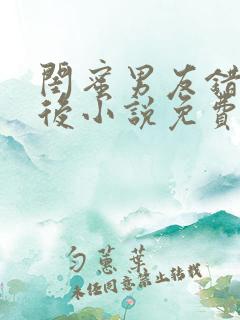 閨蜜男友錯
後小說免費
勻蕙葉
未任同意禁止转载